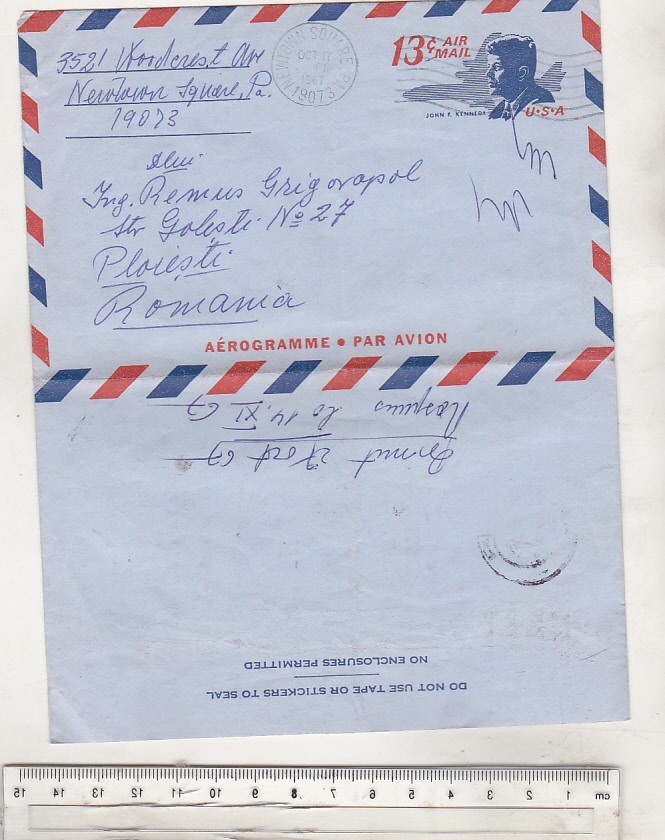 3521 Woodcrest Ave
Newtown Square, Pa.
19073
NEWTOWN SQUARE, PA.
OCT 11
1967
19073
13¢ AIR
MAIL
JOHN F. KENNEDY
U·S·A
Ing. Remus Grigorapol
Str Golești № 27
Ploiești
Romania
AÉROGRAMME • PAR AVION
DO NOT USE TAPE OR STICKERS TO SEAL
NO ENCLOSURES PERMITTED
15 14 13 12 11 10 9 8 7 6 5 4 3 2 1 cm